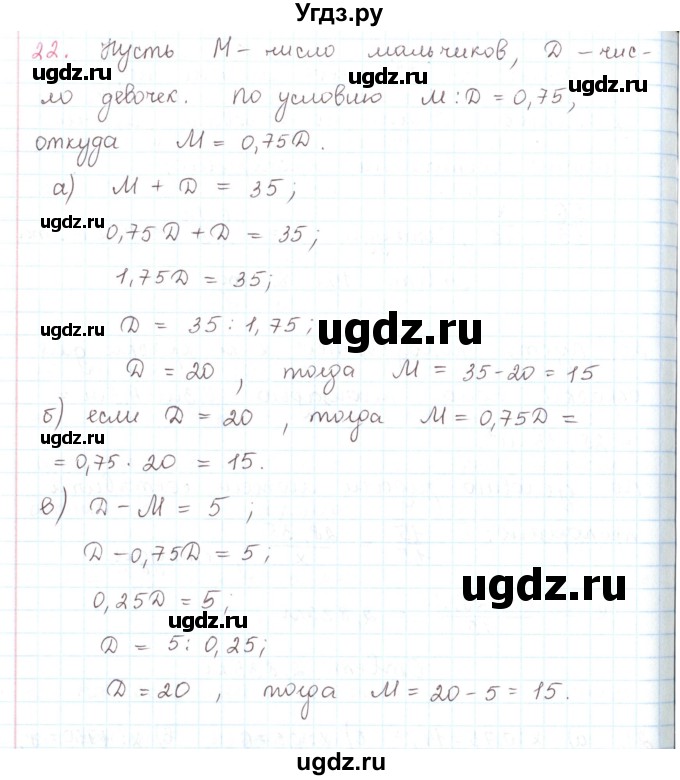 Угдз.ру
22. Пусть М – число мальчиков, D – чис-
ugdz.ru
ugdz.ru
ло девочек. По условию М : D = 0,75,
откуда М = 0,75D.
а) М + D = 35;
ugdz.ru
0,75D + D = 35;
1,75D = 35;
ugdz.ru
D = 35 : 1,75;
ugdz.ru
D = 20, тогда М = 35-20 = 15
б) если D = 20, тогда М = 0,75D =
= 0,75 · 20 = 15.
в) D – М = 5;
D – 0,75D = 5;
ugdz.ru
0,25D = 5;
ugdz.ru
D = 5 : 0,25;
D = 20, тогда М = 20 – 5 = 15.
ugdz.ru